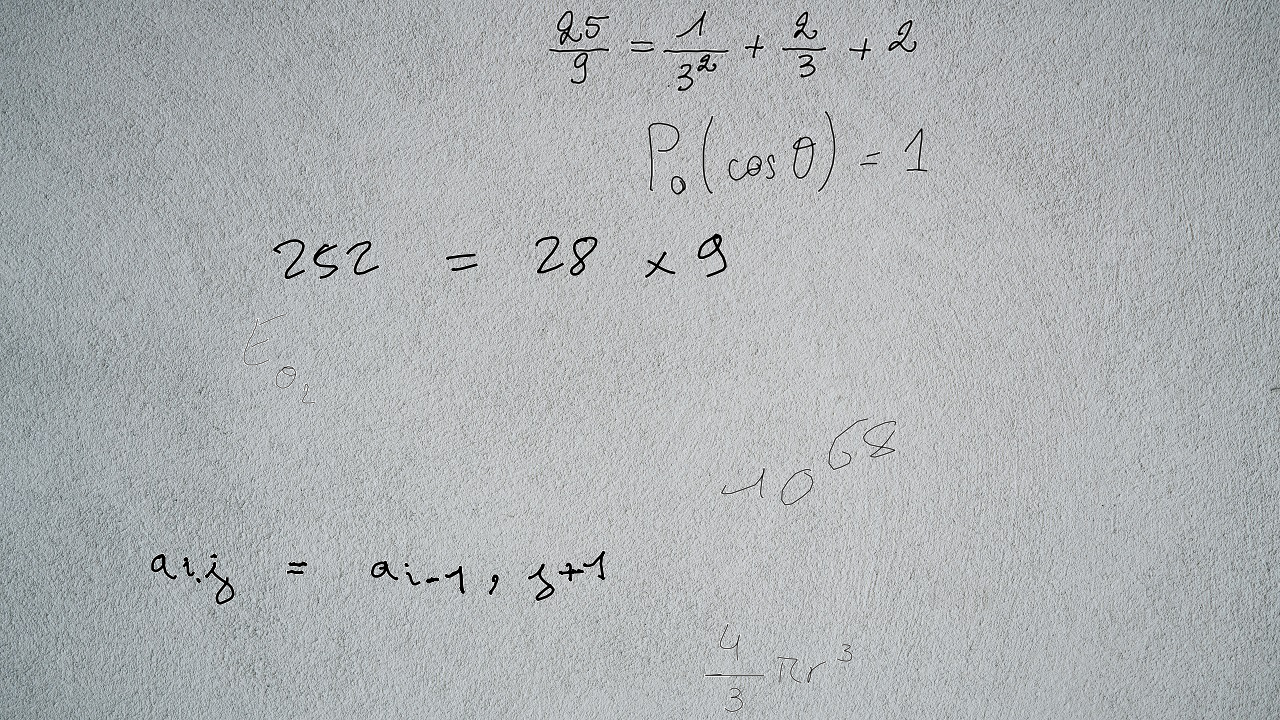 25/9 = 1/3² + 2/3 + 2
P₀(cos θ) = 1
252 = 28 × 9
E_{O₂}
10⁶⁸
a_{i,j} = a_{i-1, j+1}
4/3 πr³